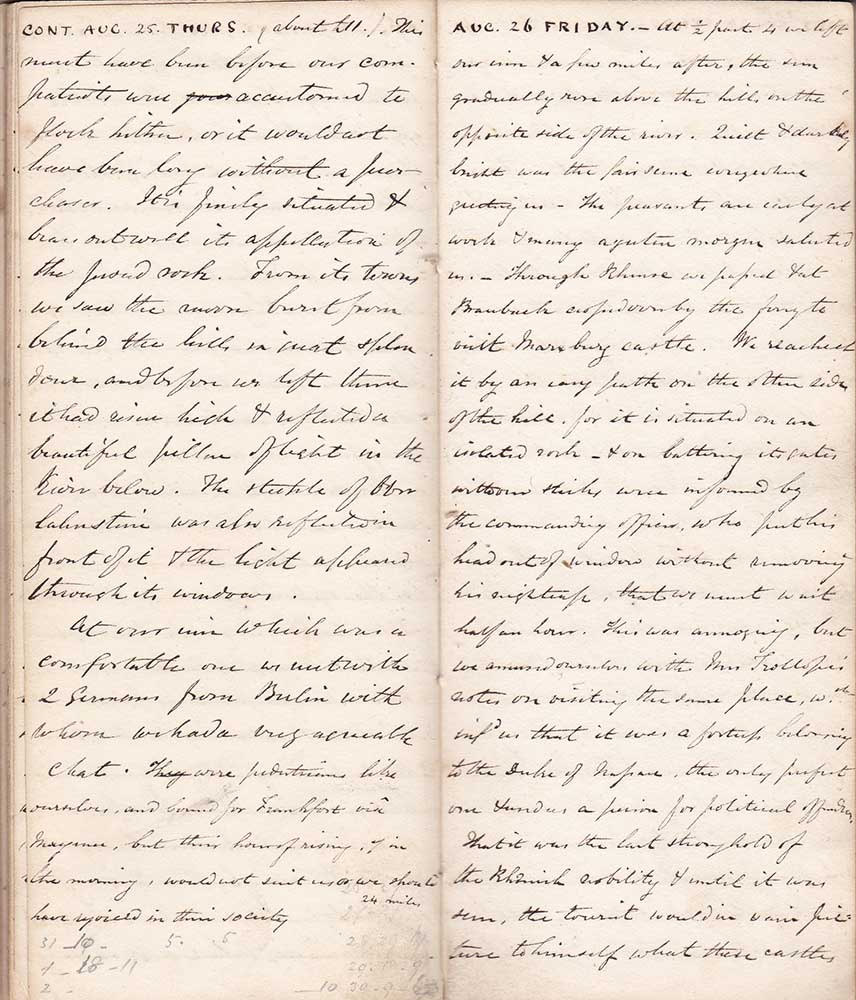 CONT. AUG. 25. THURS. (about £11.). This
must have been before our com-
patriots were accustomed to
flock hither, or it would not
have been long without a pur-
chaser. It is finely situated &
bears out well its appellation of
the proud rock. From its towers
we saw the moon burst from
behind the hills in great splen
dour, and before we left there
it had risen high & reflected a
beautiful pillar of light in the
River below. The steeple of Ober
lahnstein was also reflected in
front of it & the light appeared
through its windows.
At our inn which was a
comfortable one we met with
2 Germans from Berlin with
whom we had a very agreeable
chat. They were pedestrians like
ourselves, and bound for Frankfort viâ
Mayence, but their hour of rising, 7 in
the morning, would not suit us or we should
have rejoiced in their society
24 miles
31 - 10 - 5. 5
1 - 18 - 11
2 - 10 30 - 9
AUG. 26 FRIDAY. - At ½ past 4 we left
our inn & a few miles after, the sun
gradually rose above the hills on the
opposite side of the river. Quiet &
bright was the fair scene everywhere
greeting us - The peasants are early at
work & many a guten morgen saluted
us. - Through Rhense we passed & at
Braubach crossed over by the ferry to
visit Marxburg castle. We reached
it by an easy path on the other side
of the hill. for it is situated on an
isolated rock - & on battering its gates
with our sticks were informed by
the commanding officer, who put his
head out of window without removing
his nightcap, that we must wait
half an hour. This was annoying, but
we amused ourselves with Mrs Trollope's
notes on visiting the same place, w.ch
inf.d us that it was a fortress belonging
to the Duke of Nassau, the only perfect
one & used as a prison for political offenders,
That it was the last stronghold of
the Rhenish nobility & until it was
seen, the tourist would in vain pic-
ture to himself what these castles